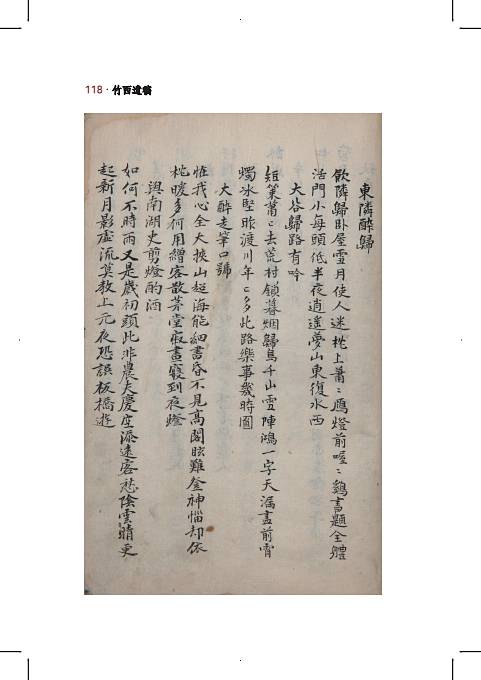 118 · 竹西遺稿
東隣醉歸
飲隣歸卧屋雪月使人迷枕上蕭〻鴈燈前喔〻鷄書題全體
活門小每頭低半夜逍遙夢山東復水西
大谷歸路有吟
短策蕭〻去荒村鎖暮烟歸鳥千山雪陣鴻一字天漏盡前宵
燭氷堅昨渡川年〻多此路樂事幾時圓
大醉走筆口號
性我心全大挾山超海能細書昏不見高閣眩難登神惱却依
枕暖多何用繒客散茅堂寂晝寢到夜燈
與南湖史剪燈酌酒
如何不時雨又是歲初頭此非農夫慶度添遠客愁陰雲晴更
起新月影虛流莫教上元夜恐誤板橋遊